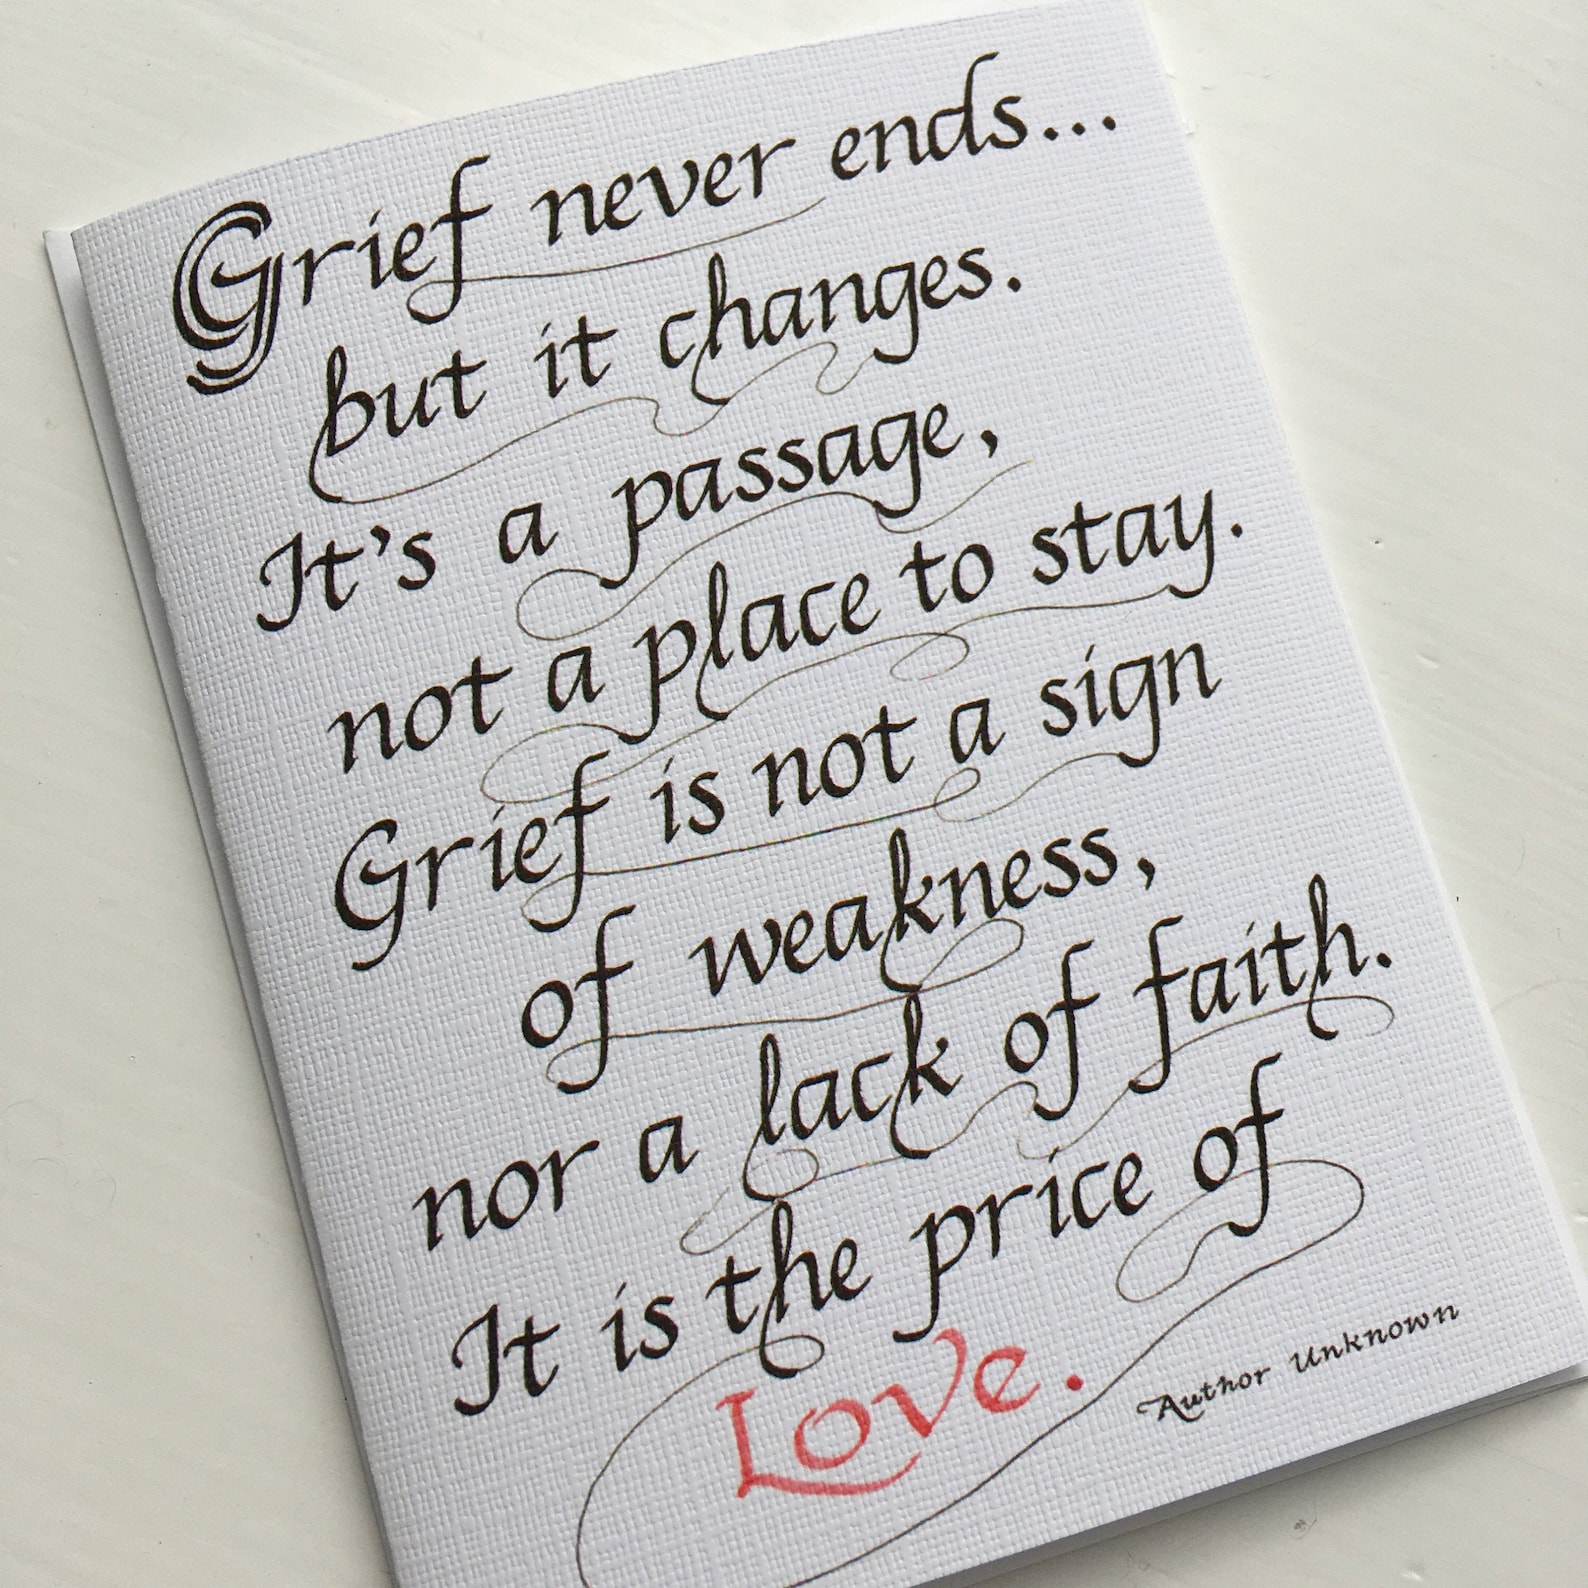 Grief never ends...
but it changes.
It's a passage,
not a place to stay.
Grief is not a sign
of weakness,
nor a lack of faith.
It is the price of
Love.
Author Unknown